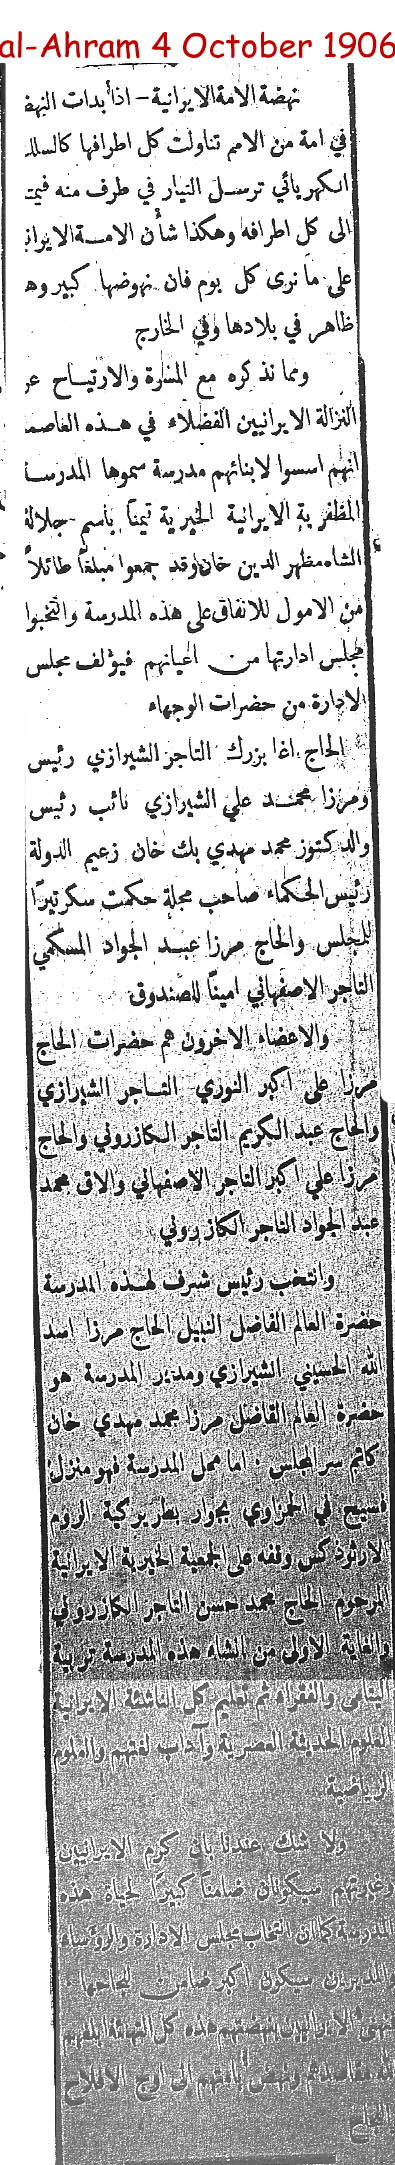 al-Ahram 4 October 1906
نهضة الامة الايرانية – اذا بدات النهض
في امة من الامم تناولت كل اطرافها كالسلك
الكهربائي ترسل التيار في طرف منه فيمتد
الى كل اطرافه وهكذا شأن الامة الايراني
على ما نرى كل يوم فان نهوضها كبير وهو
ظاهر في بلادها وفي الخارج
ومما نذكره مع المسرة والارتياح عن
النزالة الايرانيين الفضلاء في هذه العاصمة
انهم اسسوا لابنائهم مدرسة سموها المدرسة
المظفرية الايرانية الخيرية تيمناً باسم جلالة
الشاه مظهر الدين خان وقد جمعوا مبلغاً طائلاً
من الامول للانفاق على هذه المدرسة وانتخبوا
مجلس ادارتها من اعيانهم فيؤلف مجلس
الادارة من حضرات الوجهاء
الحاج اغا بزرك التاجر الشيرازي رئيس
ومرزا محمد علي الشيرازي نائب رئيس
والدكتور محمد مهدي بك خان زعيم الدولة
رئيس الحكماء صاحب مجلة حكمت سكرتيراً
للمجلس والحاج مرزا عبد الجواد المسكمي
التاجر الاصفهاني اميناً للصندوق
والاعضاء الاخرون هم حضرات الحاج
مرزا علي اكبر النوري التاجر الشيرازي
والحاج عبد الكريم التاجر الكازروني والحاج
مرزا علي اكبر التاجر الاصفهاني والاق محمد
عبد الجواد التاجر الكازروني
وانتخب رئيس شرف لهذه المدرسة
حضرة العالم الفاضل النبيل الحاج مرزا اسد
الله الحسيني الشيرازي ومدير المدرسة هو
حضرة العالم الفاضل مرزا محمد مهدي خان
كاتم سر المجلس . اما محل المدرسة فهو منزل
فسيح في الحمزاوي بجوار بطريركية الروم
الارثوذكس وقفه على الجمعية الخيرية الايرانية
المرحوم الحاج محمد حسن التاجر الكازروني
والغاية الاولى من انشاء هذه المدرسة تربية
اليتامى والفقراء ثم تعليم كل الناشئة الايرانية
العلوم الحديثة العصرية وآداب لغتهم والعلوم
الرياضية
ولا شك عندنا بان كرم الايرانيين
وغيرتهم سيكونان ضامناً كبيراً لحياة هذه
المدرسة كما ان انتخاب مجلس الادارة والرؤساء
والمديرين سيكون اكبر ضامن لنجاحها .
فنهنئ الايرانيين بنهضتهم هذه كل التهنئة
الله مقاصدهم ونهض بامتهم الى اوج الافلاح
والنجاح